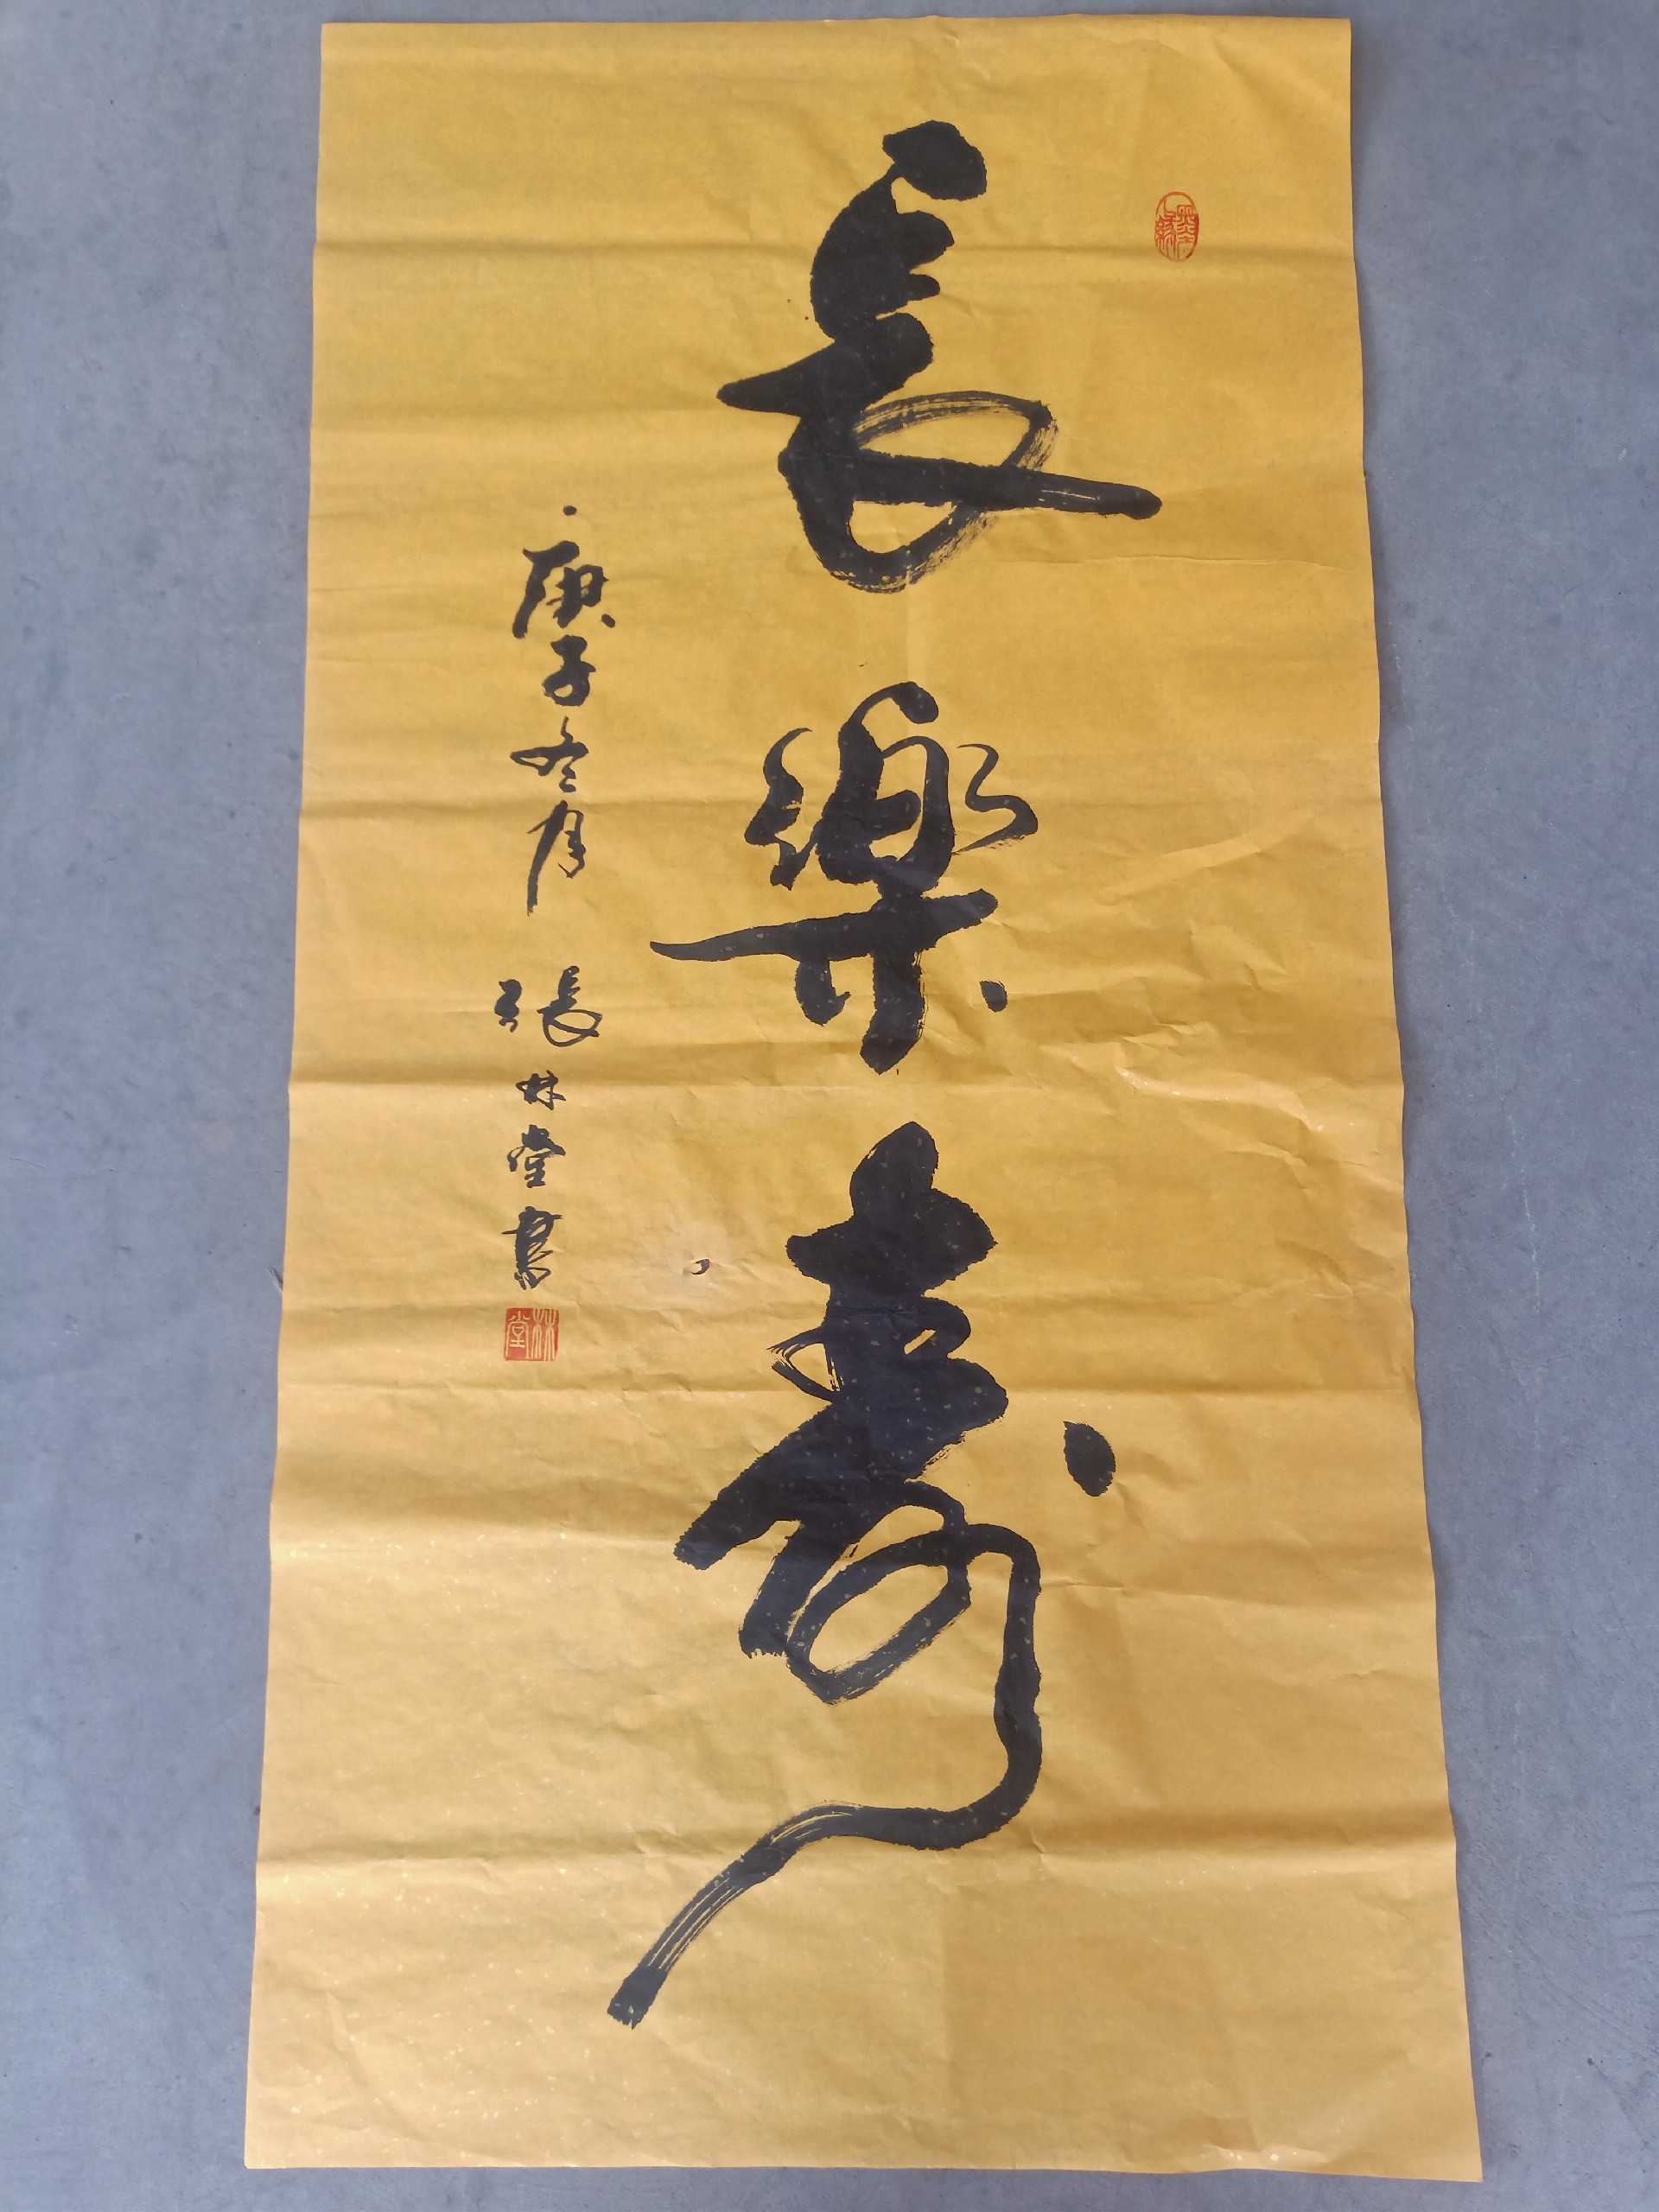 長樂壽
庚子冬月 張林堂書
林堂